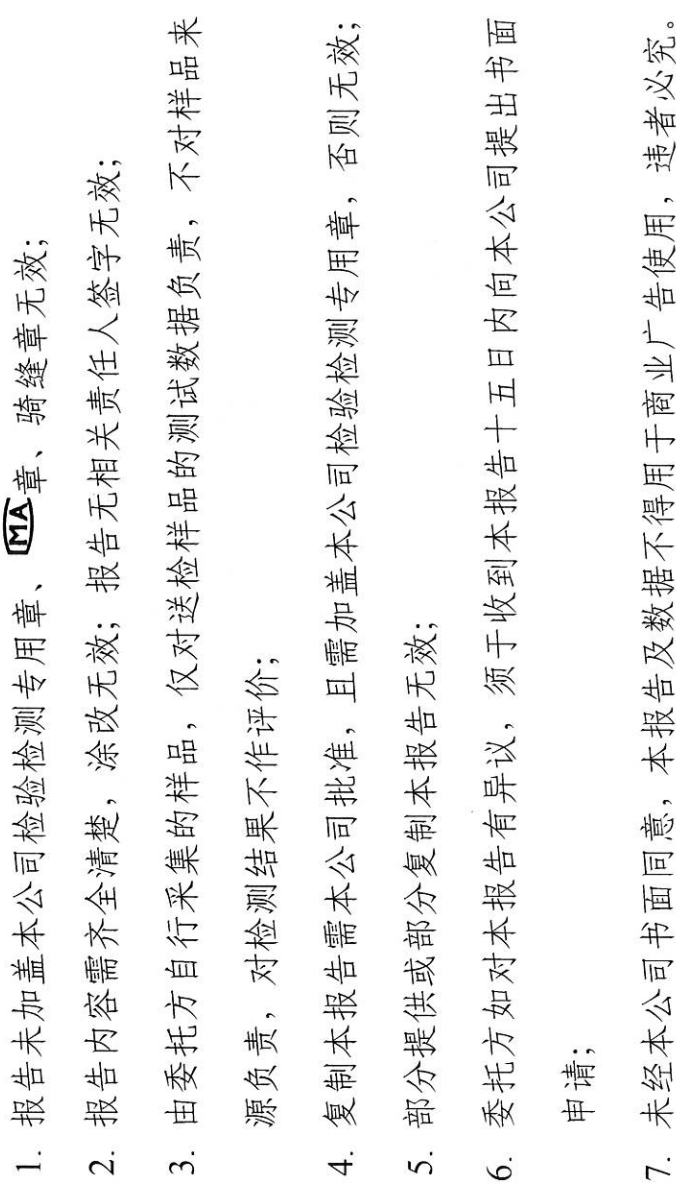 1. 报告未加盖本公司检验检测专用章、MA章、骑缝章无效；
2. 报告内容需齐全清楚，涂改无效；报告无相关责任人签字无效；
3. 由委托方自行采集的样品，仅对送检样品的测试数据负责，不对样品来
源负责，对检测结果不作评价；
4. 复制本报告需本公司批准，且需加盖本公司检验检测专用章，否则无效；
5. 部分提供或部分复制本报告无效；
6. 委托方如对本报告有异议，须于收到本报告十五日内向本公司提出书面
申请；
7. 未经本公司书面同意，本报告及数据不得用于商业广告使用，违者必究。